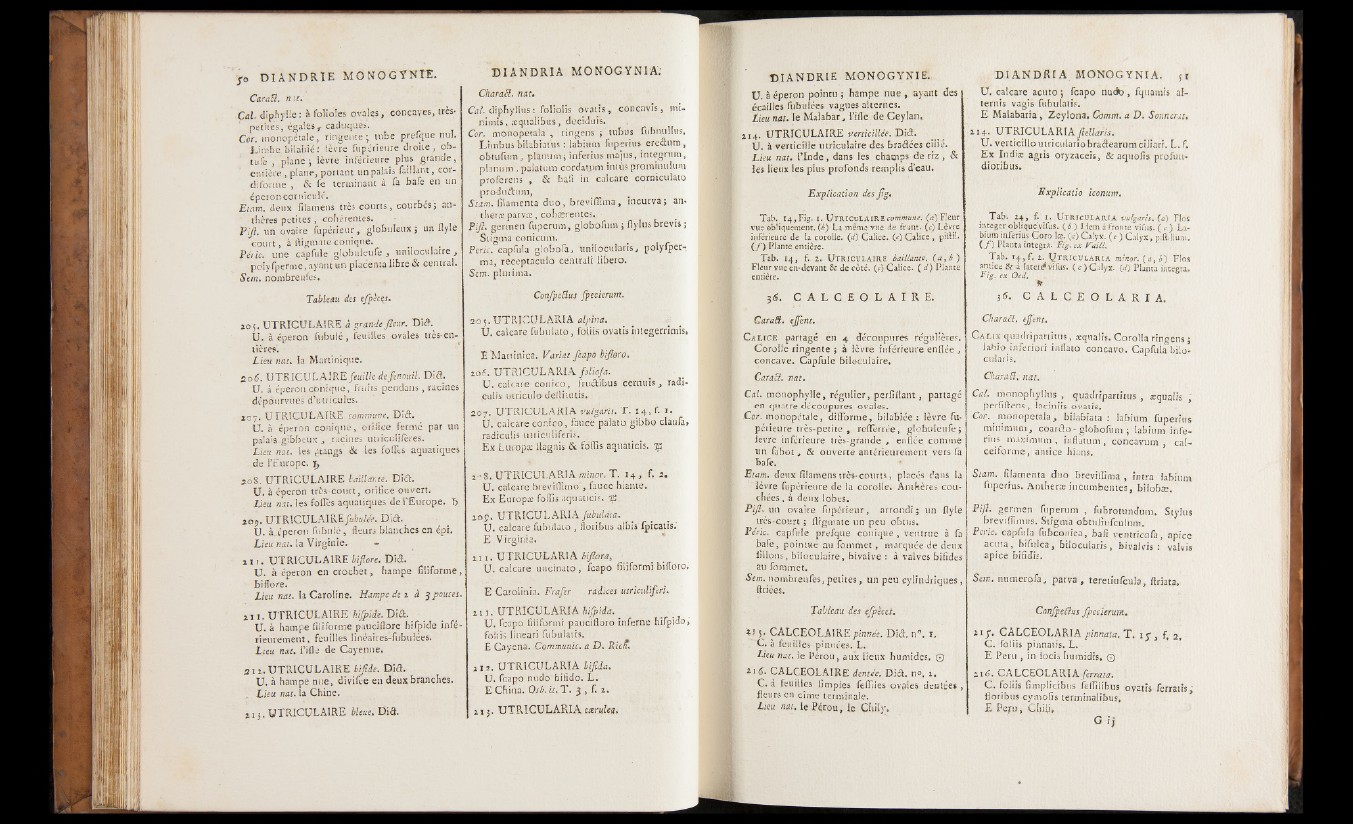 50 DIANDRIE MONOGYNIE.
Caract. nat.
Cal. diphylle : à folioles ovales, concaves, très-
petites, égales, caduques.
Cor. monopétale, ringente ; tube presque nul.
Limbe bilabié : lèvre supérieure droite, ob-
tuse, plane ; lèvre inférieure plus grande,
entière, plane, portant un palais saillant, cor-
diforme, & se terminant à sa base en un
éperon corniculé.
Etam. deux filamens très courts, courbés ; an-
thères petites, cohérentes.
Pist. un ovaire supérieur, globuleux ; un style
court, à stigmate conique.
Péric. une capsule globuleuse, uniloculaire,
polysperme, ayant un placenta libre & central.
Sem. nombreuses.
Tableau des espèces.
205. UTRICULAIRE à grande fleur. Dict.
U. à éperon subulé, feuilles ovales très-en-
tières.
Lieu nat. la Martinique.
206. UTRICULAIRE feuille de fenouil. Dict.
U. à éperon conique, fruits pendans, racines
dépourvues d'utricules.
207. UTRICULAIRE commune. Dict.
U. à éperon conique, orifice fermé par un
palais gibbeux, racines utriculifères.
Lieu nat. les étangs & les fossés aquatiques
de l'Europe. ♄
208. UTRICULAIRE baillante. Dict.
U. à éperon très-court, orifice ouvert.
Lieu nat. les fossés aquatiques de l'Europe. ♄
209. UTRICULAIRE subulée. Dict.
U. à éperon subulé, fleurs blanches en épi.
Lieu nat. la Virginie.
211. UTRICULAIRE biflore. Dict.
U. à éperon en crochet, hampe filiforme,
biflore.
Lieu nat. la Caroline. Hampe de 2 à 3 pouces.
211. UTRICULAIRE hispide. Dict.
U. à hampe filiforme pauciflore hispide infé-
rieurement, feuilles linéaires-subulées.
Lieu nat. l'isle de Cayenne.
212. UTRICULAIRE bifide. Dict.
U. à hampe nue, divisée en deux branches.
Lieu nat. la Chine.
213. UTRICULAIRE bleue. Dict.
DIANDRIA MONOGYNIA.
Charact. nat.
Cal. diphyllus : foliolis ovatis, concavis, mi-
nimis, æqualibus, deciduis.
Cor. monopetala, ringens ; tubus subnullus,
Limbus bilabiatus : labium superius erectum,
obtusum, planum ; inferius majus, integrum,
planum, palatum cordatum intùs prominulum
proferens, & basi in calcare corniculato
productum,
Stam. filamenta duo, brevissima, incurva ; an-
theræ parvæ, cohærentes.
Pist. germen superum, globosum ; stylus brevis ;
Stigma conicum.
Peric. capsula globosa, unilocularis, polysper-
ma, receptaculo centrali libero.
Sem. plurima.
Conspectus specierum.
205. UTRICULARIA alpina.
U. calcare subulato, foliis ovatis integerrimis.
E Martinica. Variat scapo bifloro.
206. UTRICULARIA foliosa.
U. calcare conico, fructibus cernuis, radi-
culis utriculo destitutis.
207. UTRICULARIA vulgaris. T. 14, f. 1.
U. calcare conico, fauce palato gibbo clausa,
radiculis utriculiferis.
Ex Europæ stagnis & fossis aquaticis. ♃
208. UTRICULARIA minor. T. 14, f. 2.
U. calcare brevissimo, fauce hiante.
Ex Europæ fossis aquaticis. ♃
209. UTRICULARIA subulata.
U. calcare subulato, floribus albis spicatis.
E Virginia.
211. UTRICULARIA biflora,
U. calcare uncinato, scapo filiformi bifloro.
E Carolinia. Fraser radices utriculiferi.
211. UTRICULARIA hispida.
U. scapo filiformi paucifloro inferne hispido,
foliis lineari subulatis.
E Cayena. Communic. a D. Rich.
212. UTRICULARIA bifida.
U. scapo nudo bifido. L.
E China. Osb. it. T. 3, f. 2.
213. UTRICULARIA cærulea.
DIANDRIE MONOGYNIE.
U. à éperon pointu ; hampe nue, ayant des
écailles subulées vagues alternes.
Lieu nat. le Malabar, l'isle de Ceylan.
214. UTRICULAIRE verticillée. Dict.
U. à verticille utriculaire des bractées cilié.
Lieu nat. l'Inde, dans les champs de riz, &
les lieux les plus profonds remplis d'eau.
Explication des fig.
Tab. 14, Fig. 1. UTRICULAIRE commune. (a) Fleur
vue obliquement. (b) La même vue de front. (c) Lèvre
inférieure de la corolle. (d) Calice. (e) Calice, pistil.
(f) Plante entière.
Tab. 14, f. 2. UTRICULAIRE baillante. (a, b)
Fleur vue en-devant & de côté. (c) Calice. (d) Plante
entière.
36. CALCEOLAIRE.
Caract. essent.
CALICE partagé en 4 découpures régulières.
Corolle ringente ; à lèvre inférieure enflée,
concave. Capsule biloculaire.
Caract. nat.
Cal. monophylle, régulier, persistant, partagé
en quatre découpures ovales.
Cor. monopétale, difforme, bilabiée : lèvre su-
périeure très-petite, resserrée, globuleuse ;
levre inférieure très-grande, enflée comme
un sabot, & ouverte antérieurement vers sa
base.
Etam. deux filamens très-courts, placés dans la
lèvre supérieure de la corolle. Anthères cou-
chées, à deux lobes.
Pist. un ovaire supérieur, arrondi ; un style
très-court ; stigmate un peu obtus.
Péric. capsule presque conique, ventrue à sa
base, pointue au sommet, marquée de deux
sillons, biloculaire, bivalve : à valves bifides
au sommet.
Sem. nombreuses, petites, un peu cylindriques,
striées.
Tableau des espèces.
215. CALCEOLAIRE pinnée. Dict. n°. 1.
C. à feuilles pinnées. L.
Lieu nat. le Pérou, aux lieux humides. ☉
216. CALCEOLAIRE dentée. Dict. no. 2.
C. à feuilles simples sessiles ovales dentées,
fleurs en cime terminale.
Lieu nat. le Pérou, le Chily.
DIANDRIA MONOGYNIA. 51
U. calcare acuto ; scapo nudo, squamis al-
ternis vagis subulatis.
E Malabaria, Zeylona. Comm. a D. Sonnerat.
214. UTRICULARIA stellaris.
U. verticillo utriculario bractearum ciliari. L. f.
Ex Indiæ agris oryzaceis, & aquosis profun-
dioribus.
Explicatio iconum.
Tab. 24, f. 1. UTRICULARIA vulgaris. (a) Flos
integer oblique visus. (b) Idem à fronte visus. (c) La-
bium inferius Corollæ. (d) Calyx. (e) Calyx, pistillum.
(f) Planta integra. Fig. ex Vaill.
Tab. 14, f. 2. UTRICULARIA minor. (a, b) Flos
antice & à latere visus. (c) Calyx. (d) Planta integra.
Fig. ex Oed.
36. CALCEOLARIA.
Charact. essent.
CALIX quadripartitus, æqualis. Corolla ringens ;
labio inferiori inflato concavo. Capsula bilo-
cularis.
Charact. nat.
Cal. monophyllus, quadripartitus, æqualis,
persistens, laciniis ovatis.
Cor. monopetala, bilabiata : labium superius
minimum, coarcto-globosum ; labium infe-
rius maximum, inflatum, concavum, cal-
ceiforme, antice hians.
Stam. filamenta duo brevissima, intra labium
superius. Antheræ incumbentes, bilobæ.
Pist. germen superum, subrotundum. Stylus
brevissimus. Stigma obtusiusculum.
Peric. capsula subconica, basi ventricosa, apice
acuta, bisulca, bilocularis, bivalvis : valvis
apice bifidis.
Sem. numerosa, parva, teretiuscula, striata.
Conspectus specierum.
215. CALCEOLARIA pinnata. T. 15, f. 2,
C. foliis pinnatis. L.
E Peru, in locis humidis. ☉
216. CALCEOLARIA serrata.
C. foliis simplicibus sessilibus ovatis serratis,
floribus cymosis terminalibus.
E Peru, Chili.
G ij